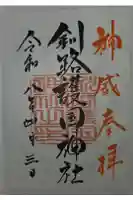 神威奉拝
釧路護国神社
令和八年 月三日